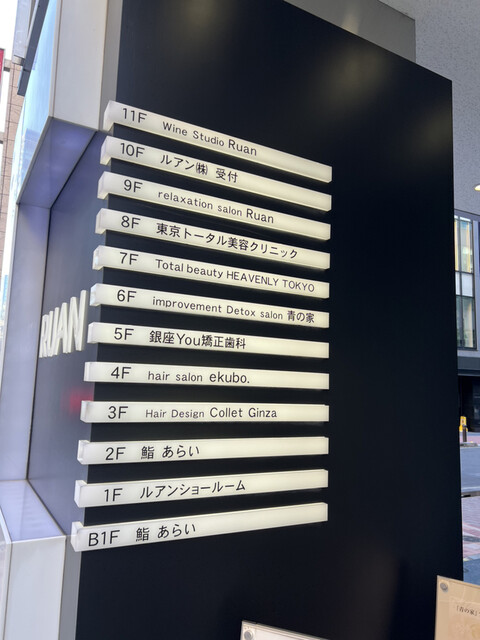 11F Wine Studio Ruan
10F ルアン㈱ 受付
9F relaxation salon Ruan
8F 東京トータル美容クリニック
7F Total beauty HEAVENLY TOKYO
6F improvement Detox salon 青の家
5F 銀座You矯正歯科
4F hair salon ekubo.
3F Hair Design Collet Ginza
2F 鮨 あらい
1F ルアンショールーム
B1F 鮨 あらい
RUAN